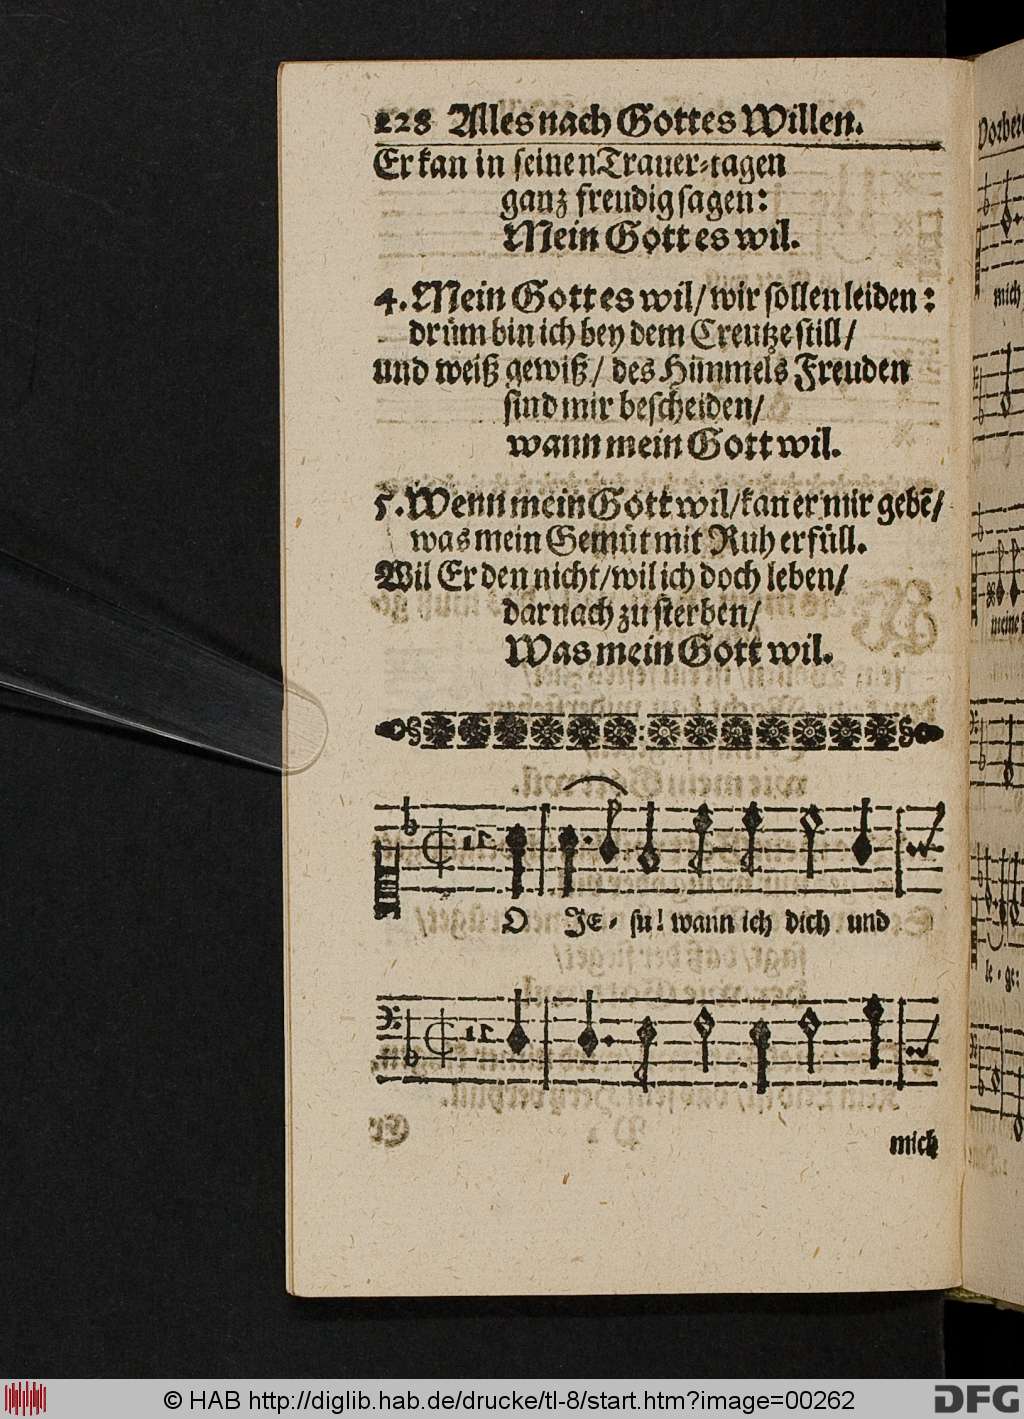 228 Alles nach Gottes Willen.
Er kan in seinen Trauer-tagen
ganz freudig sagen:
Mein Gott es wil.
4. Mein Gott es wil/ wir sollen leiden:
drüm bin ich bey dem Creutze still/
und weiß gewiß/ des Himmels Freuden
sind mir bescheiden/
wann mein Gott wil.
5. Wenn mein Gott wil/ kan er mir gebē/
was mein Gemüt mit Ruh erfüll.
Wil Er den nicht/ wil ich doch leben/
darnach zu sterben/
Was mein Gott wil.
O JE- su! wann ich dich und
mich
© HAB http://diglib.hab.de/drucke/tl-8/start.htm?image=00262
DFG